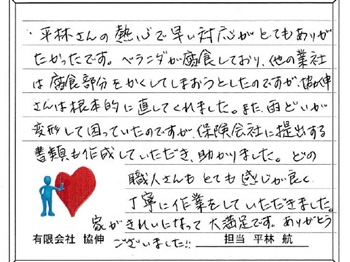 ・平林さんの熱心で早い対応がとてもありが
たかったです。ベランダが腐食しており、他の業社
は腐食部分をかくしてしまおうとしたのですが、協伸
さんは根本的に直してくれました。また、雨どいが
変形して困っていたのですが、保険会社に提出する
書類も作成していただき、助かりました。どの
職人さんもとても感じが良く
丁寧に作業をしていただきました。
家がきれいになって大満足です。ありがとう
ございました!!
有限会社 協伸
担当 平林 航